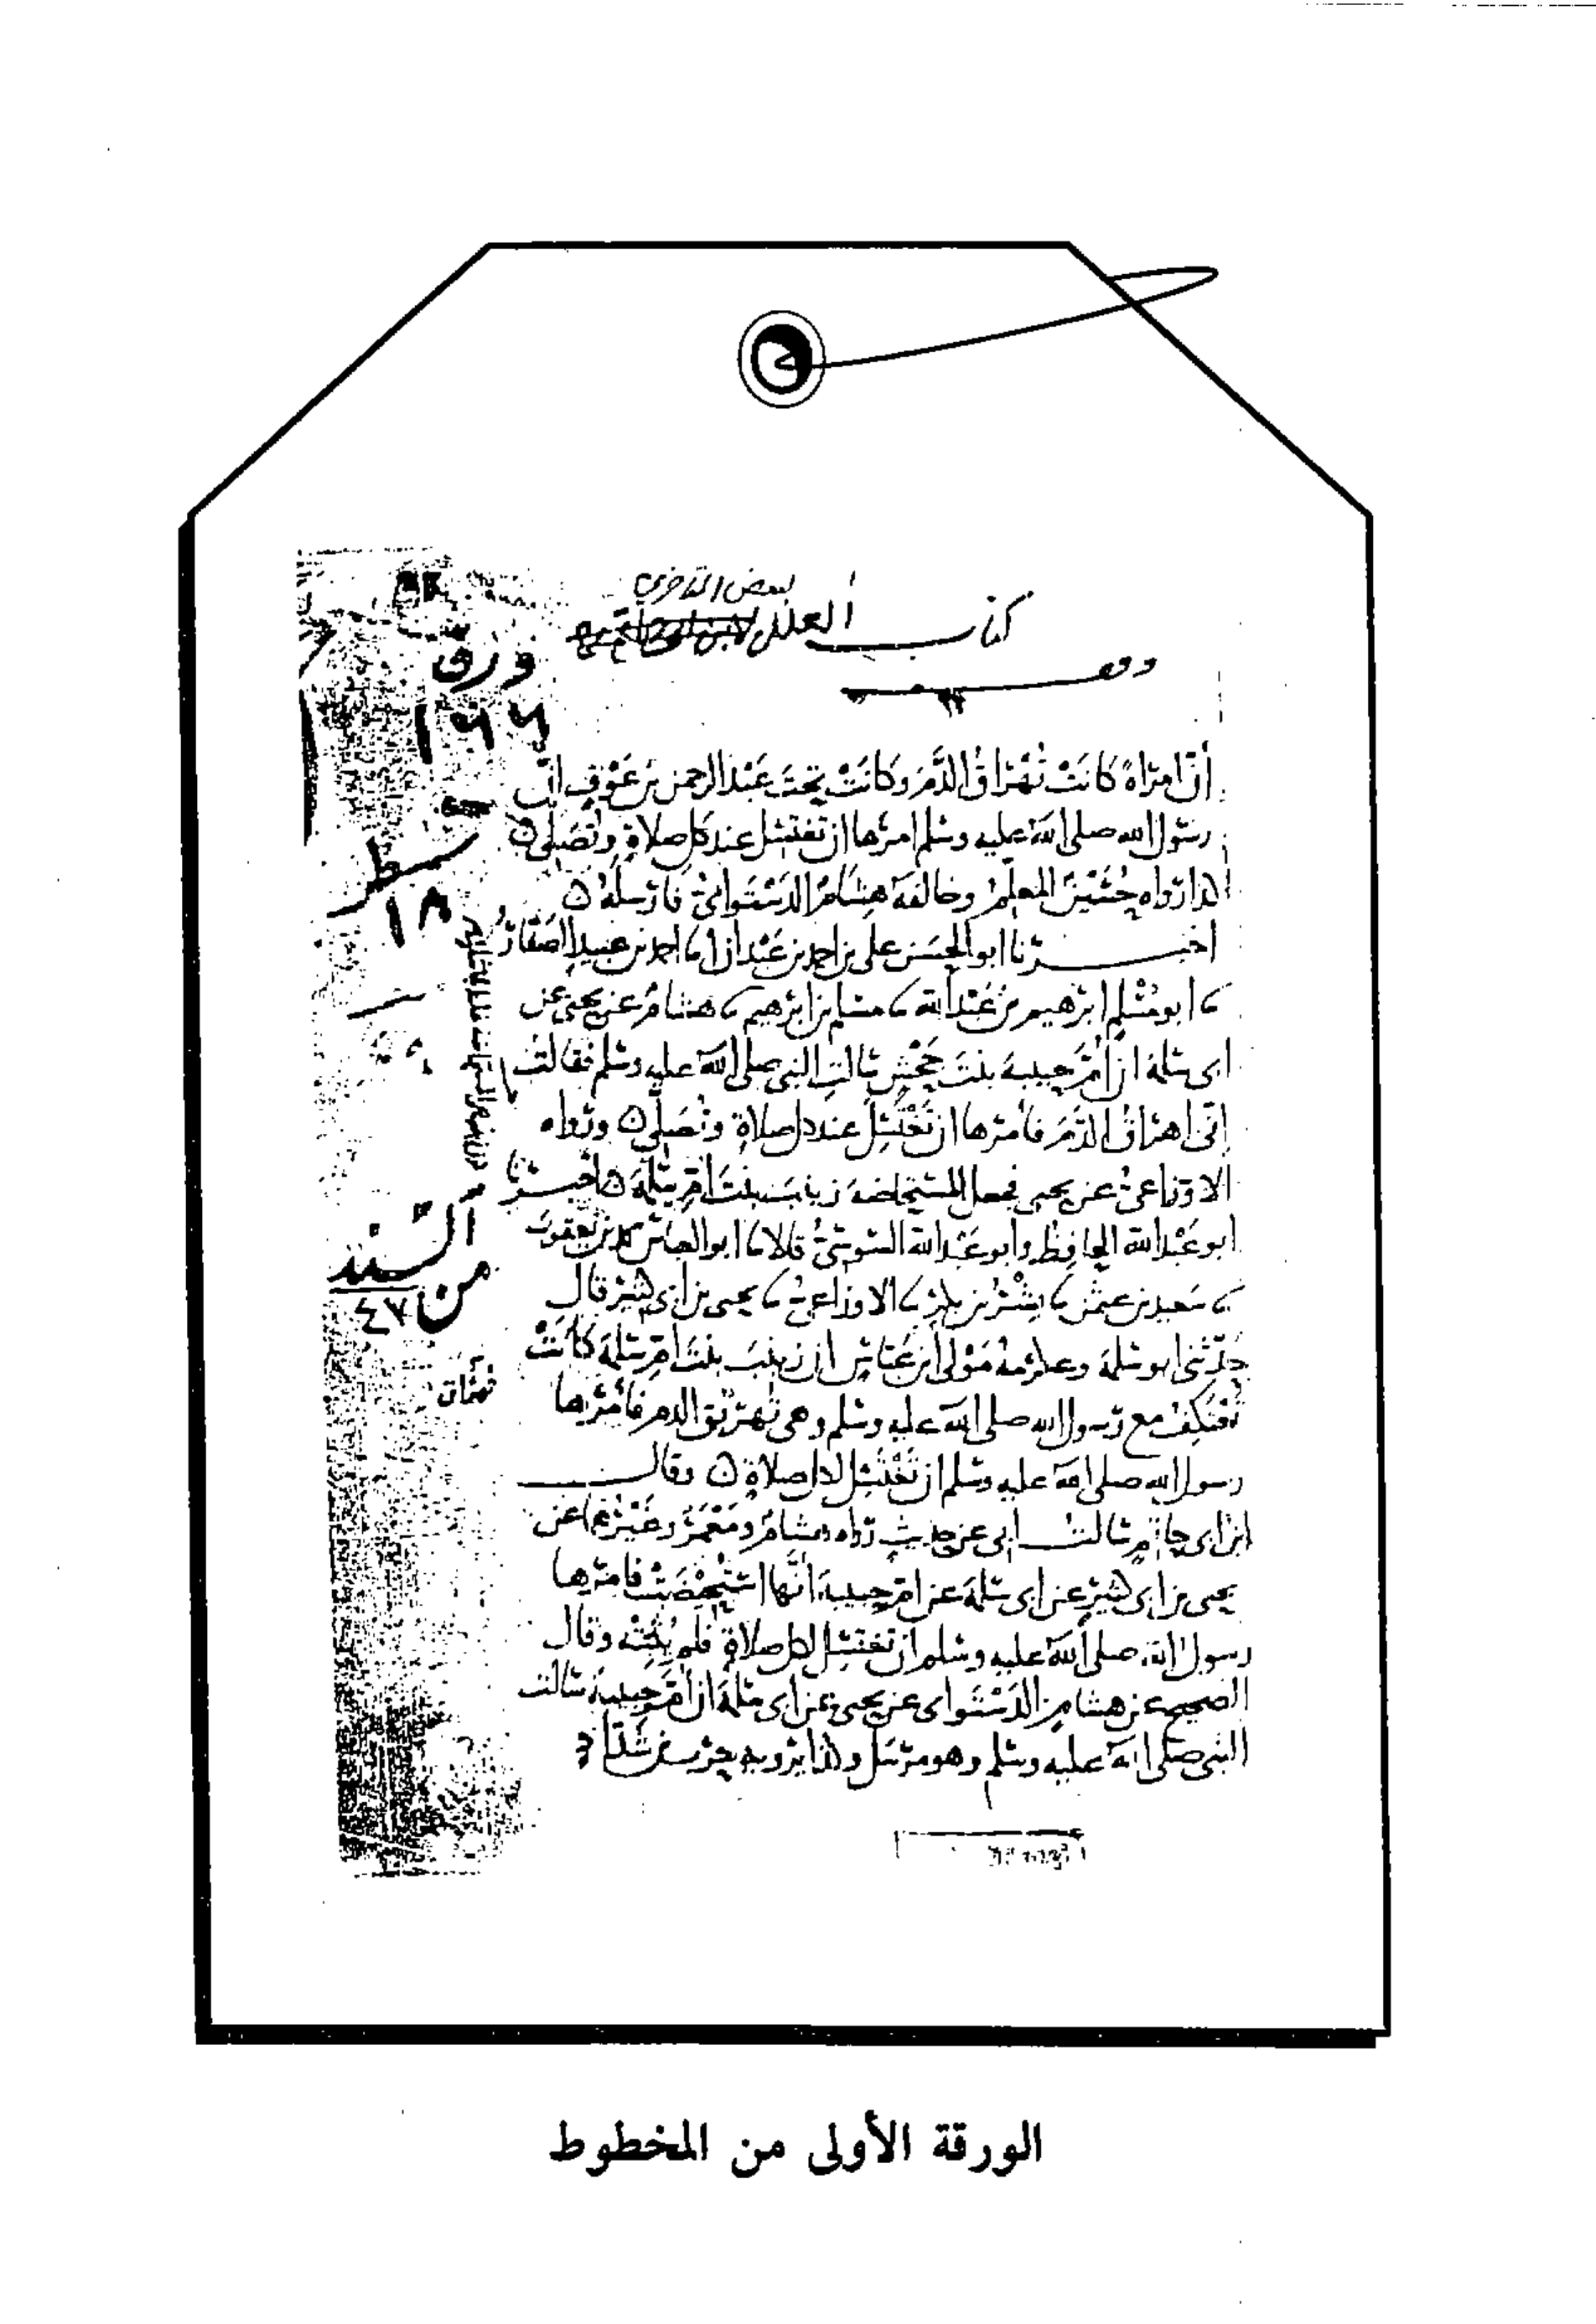 بعض المتأخرين
كتاب العلل
وقف
ورق
١٦٦
سطر
١٨
أن امرأة كانت تهراق الدم وكانت تحت عبد الرحمن بن عوف ان
رسول الله صلى الله عليه وسلم امرها ان تغتسل عند كل صلاة وتصلي ه
كذا رواه حسين المعلم وخالفه هشام الدستوائي فارسله ه
اخبرنا ابو الحسن علي بن احمد بن عبدان انا احمد بن عبيد الصفار
ابو مسلم ابرهيم بن عبد الله مسلم بن ابرهيم هشام عن يحيى عن
ابي سلمة ان ام حبيبة بنت جحش سالت النبي صلى الله عليه وسلم فقالت
اني اهراق الدم فأمرها ان تغتسل عند كل صلاة وتصلي ه ورواه
الاوزاعي عن يحيى فجعل المستحاضة زينب بنت ام سلمة ه اخبرنا
ابو عبد الله الحافظ وابو عبد الله السوسي قالا ابو العباس محمد بن يعقوب
سعيد بن عثمن بشر بن بكر الاوزاعي يحيى بن ابي كثير قال
حدثني ابو سلمة وعكرمة مولى ابن عباس ان زينب بنت ام سلمة كانت
تعتكف مع رسول الله صلى الله عليه وسلم وهي تهريق الدم فأمرها
رسول الله صلى الله عليه وسلم ان تغتسل لكل صلاة ه وقال
ابن ابي حاتم سالت ابي عن حديث رواه هشام ومعمر وغيرهما عن
يحيى بن ابي كثير عن ابي سلمة عن ام حبيبة انها استحيضت فامرها
رسول الله صلى الله عليه وسلم ان تغتسل لكل صلاة فلم يثبته وقال
الصحيح عن هشام الدستوائي عن يحيى عن ابي سلمة ان ام حبيبة سالت
النبي صلى الله عليه وسلم وهو مرسل وكذا يرويه حرب بن شداد
السند
من
٤٧
الورقة الأولى من المخطوط